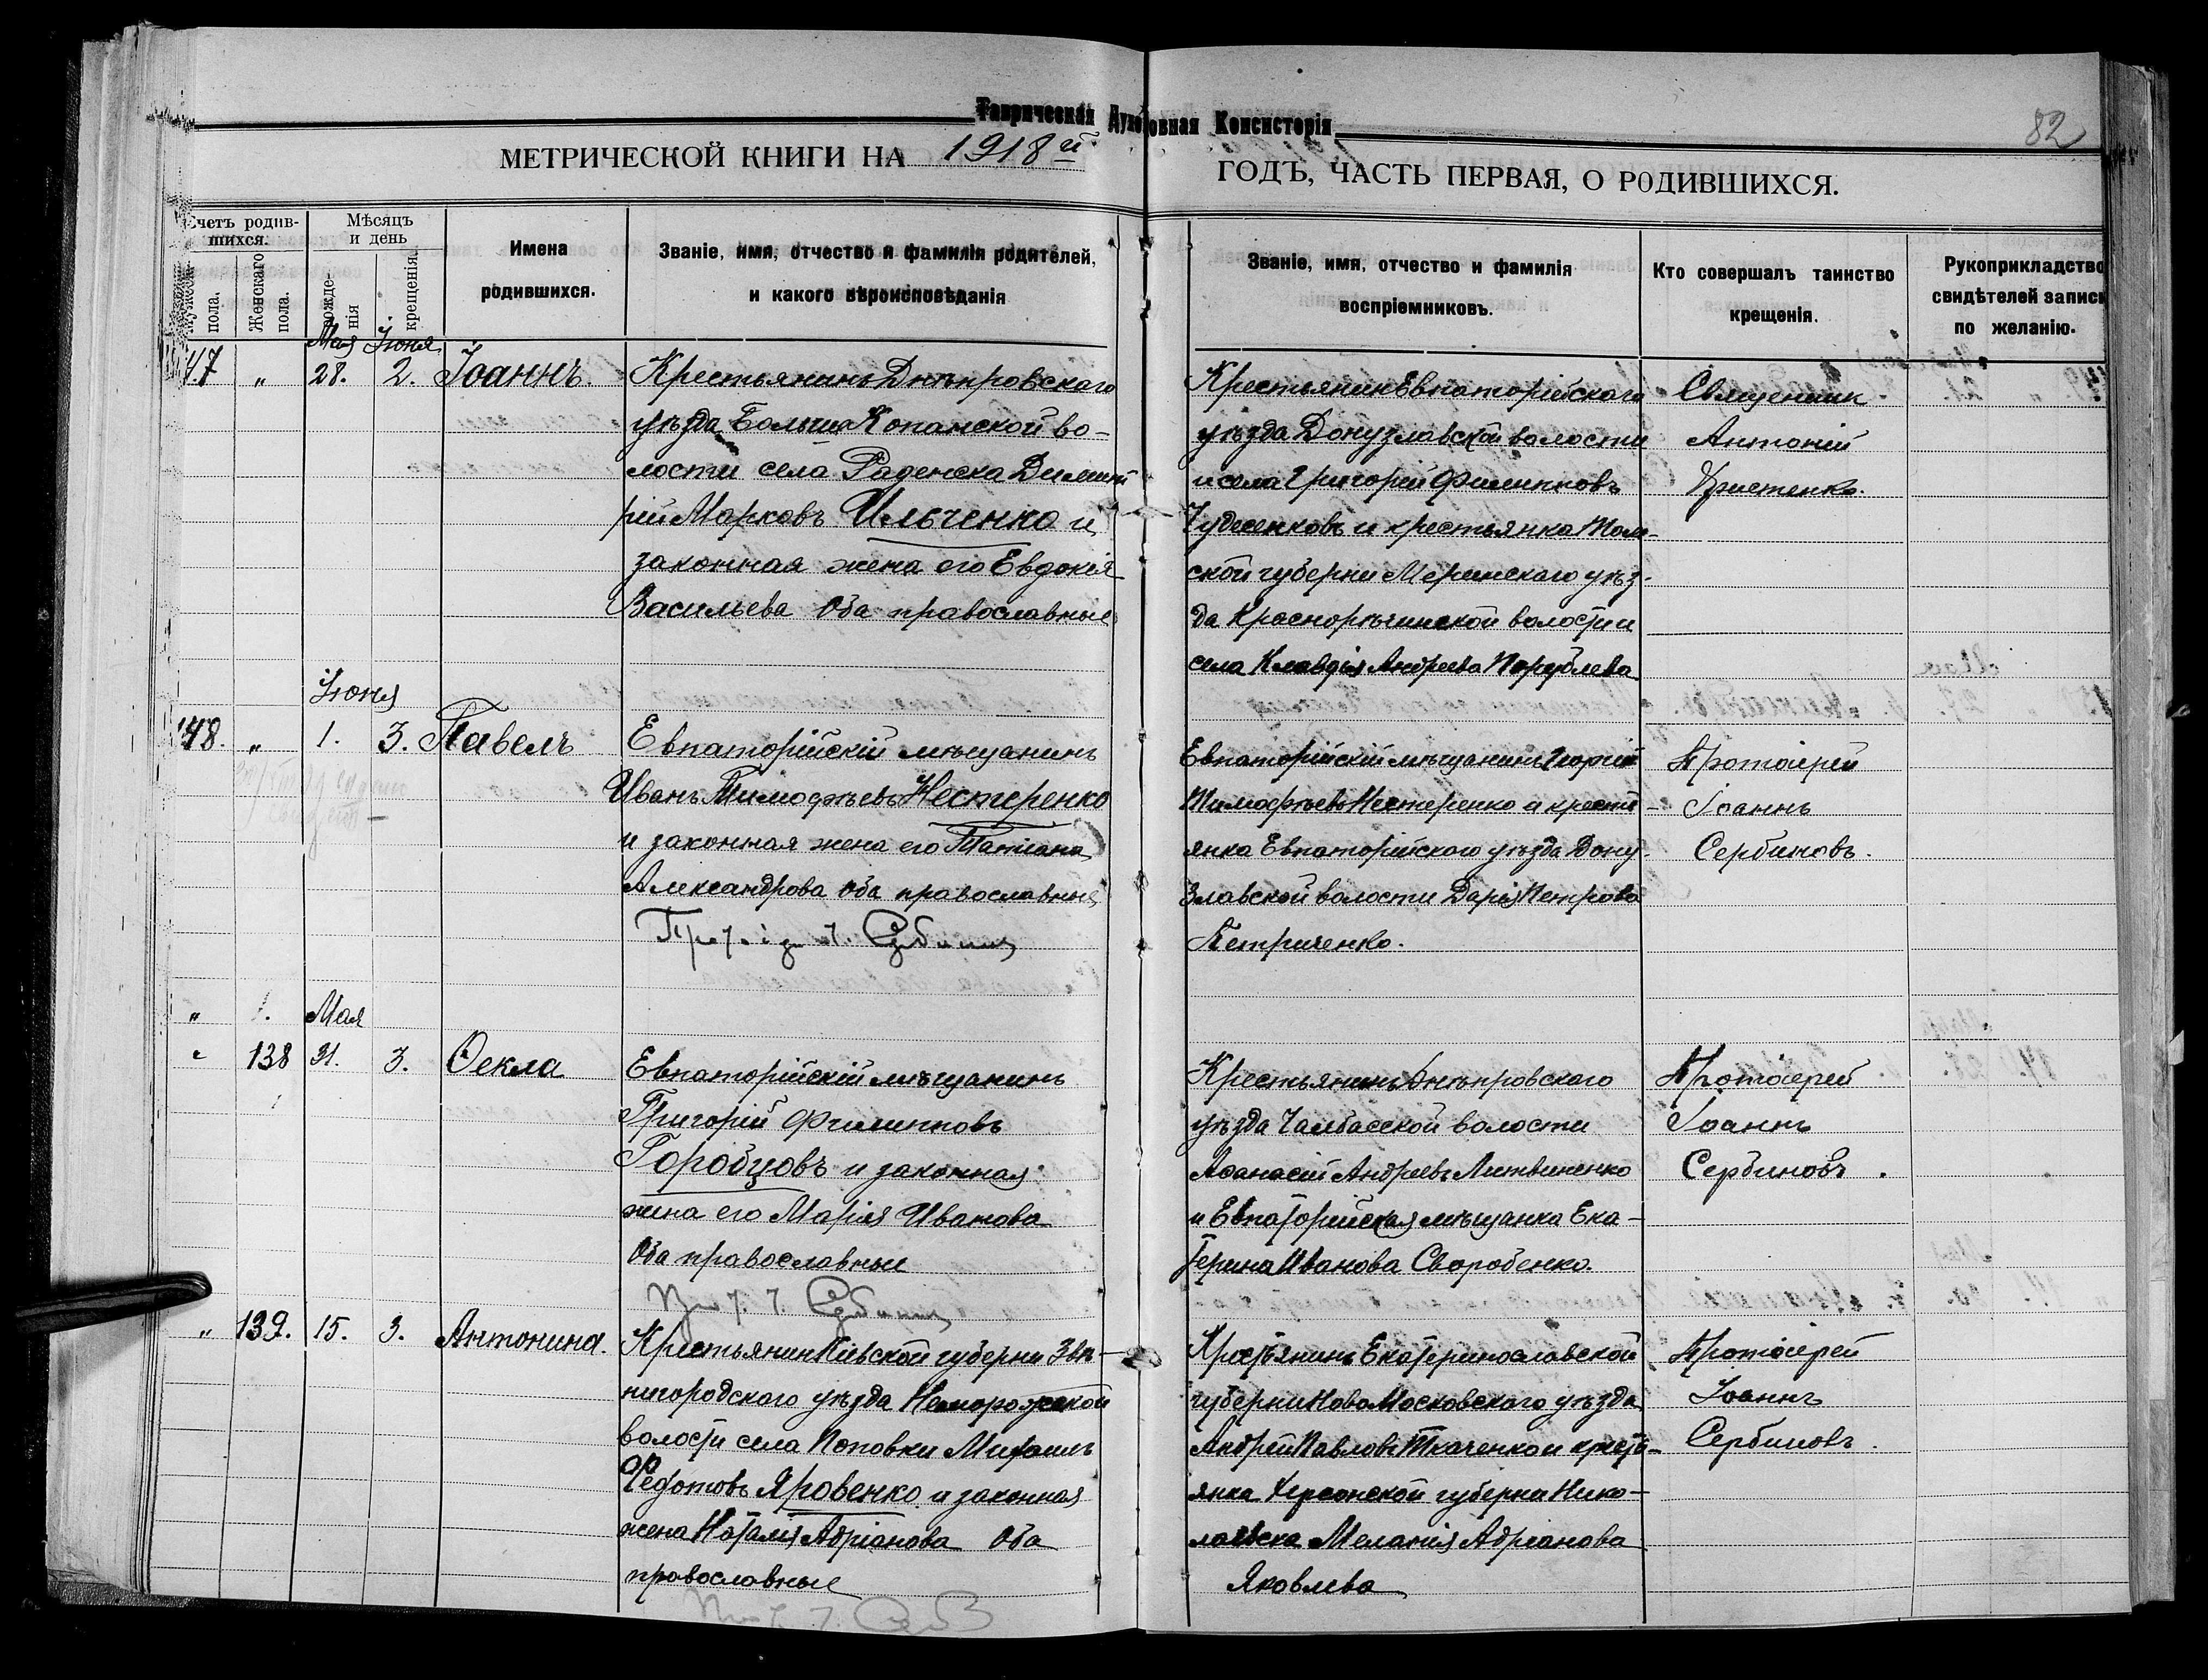 Таврическая Духовная Консисторія
82
МЕТРИЧЕСКОЙ КНИГИ НА 1918й ГОДЪ, ЧАСТЬ ПЕРВАЯ, О РОДИВШИХСЯ.
Счетъ родив-
шихся.
Мужеск.
пола.
Женскаго
пола.
Мѣсяцъ
и день
рожде-
нія
крещенія.
Имена
родившихся.
Званіе, имя, отчество и фамилія родителей,
и какого вѣроисповѣданія
Званіе, имя, отчество и фамилія
воспріемниковъ.
Кто совершалъ таинство
крещенія.
Рукоприкладство
свидѣтелей записи
по желанію.
Мая Іюня
47 „ 28. 2. Іоаннъ.
Крестьянинъ Днѣпровскаго
уѣзда Больше Копанской во-
лости села Раденска Димит
рій Марковъ Ильченко и
законная жена его Евдокія
Васильева Оба православные
Крестьянин Евпаторійскаго
уѣзда Донузлавской волости
и села Григорій Филипповъ
и крестьянка Том-
ской губерни Маринскаго уѣз-
да Краснорѣчинской волости и
села Клавдія Андреева
Священник
Антоній
Христенко.
Іюня
148. „ 1. 3. Павелъ
Евпаторійскій мѣщанинъ
Иванъ Тимофѣевъ Нестеренко
и законная жена его Татіана
Александрова Оба православные
Евпаторійскій мѣщанинъ Георгій
Тимофѣевъ Нестеренко и кресть-
янка Евпаторійскаго уѣзда Дону-
злавской волости Дарія Петрова
Петриченко.
Протоіерей
Іоаннъ
Сербиновъ.
„ Мая
„ 138 31. 3. Ѳекла
Евпаторійскій мѣщанинъ
Григорій Филипповъ
Горобцовъ и законная
жена его Марія Иванова
Оба православные
Крестьянинъ Днѣпровскаго
уѣзда Чалбасской волости
Аѳанасій Андреевъ Литвиненко
и Евпаторійская мѣщанка Ека-
терина Иванова Своробенко.
Протоіерей
Іоаннъ
Сербиновъ.
„ 139. 15. 3. Антонина.
Крестьянин Кіевской губерни Зве-
нигородского уѣзда
волости села Поповки Михаилъ
Федотовъ Яровенко и законная
жена Наталія Адріанова Оба
православные
Крестьянинъ Екатеринославской
губерни Ново Московскаго уѣзда
Андрей Павловъ Ткаченко и кресть-
янка Херсонской губерни Нико-
лаевска Меланія Адріанова
Яковлева
Протоіерей
Іоаннъ
Сербиновъ.